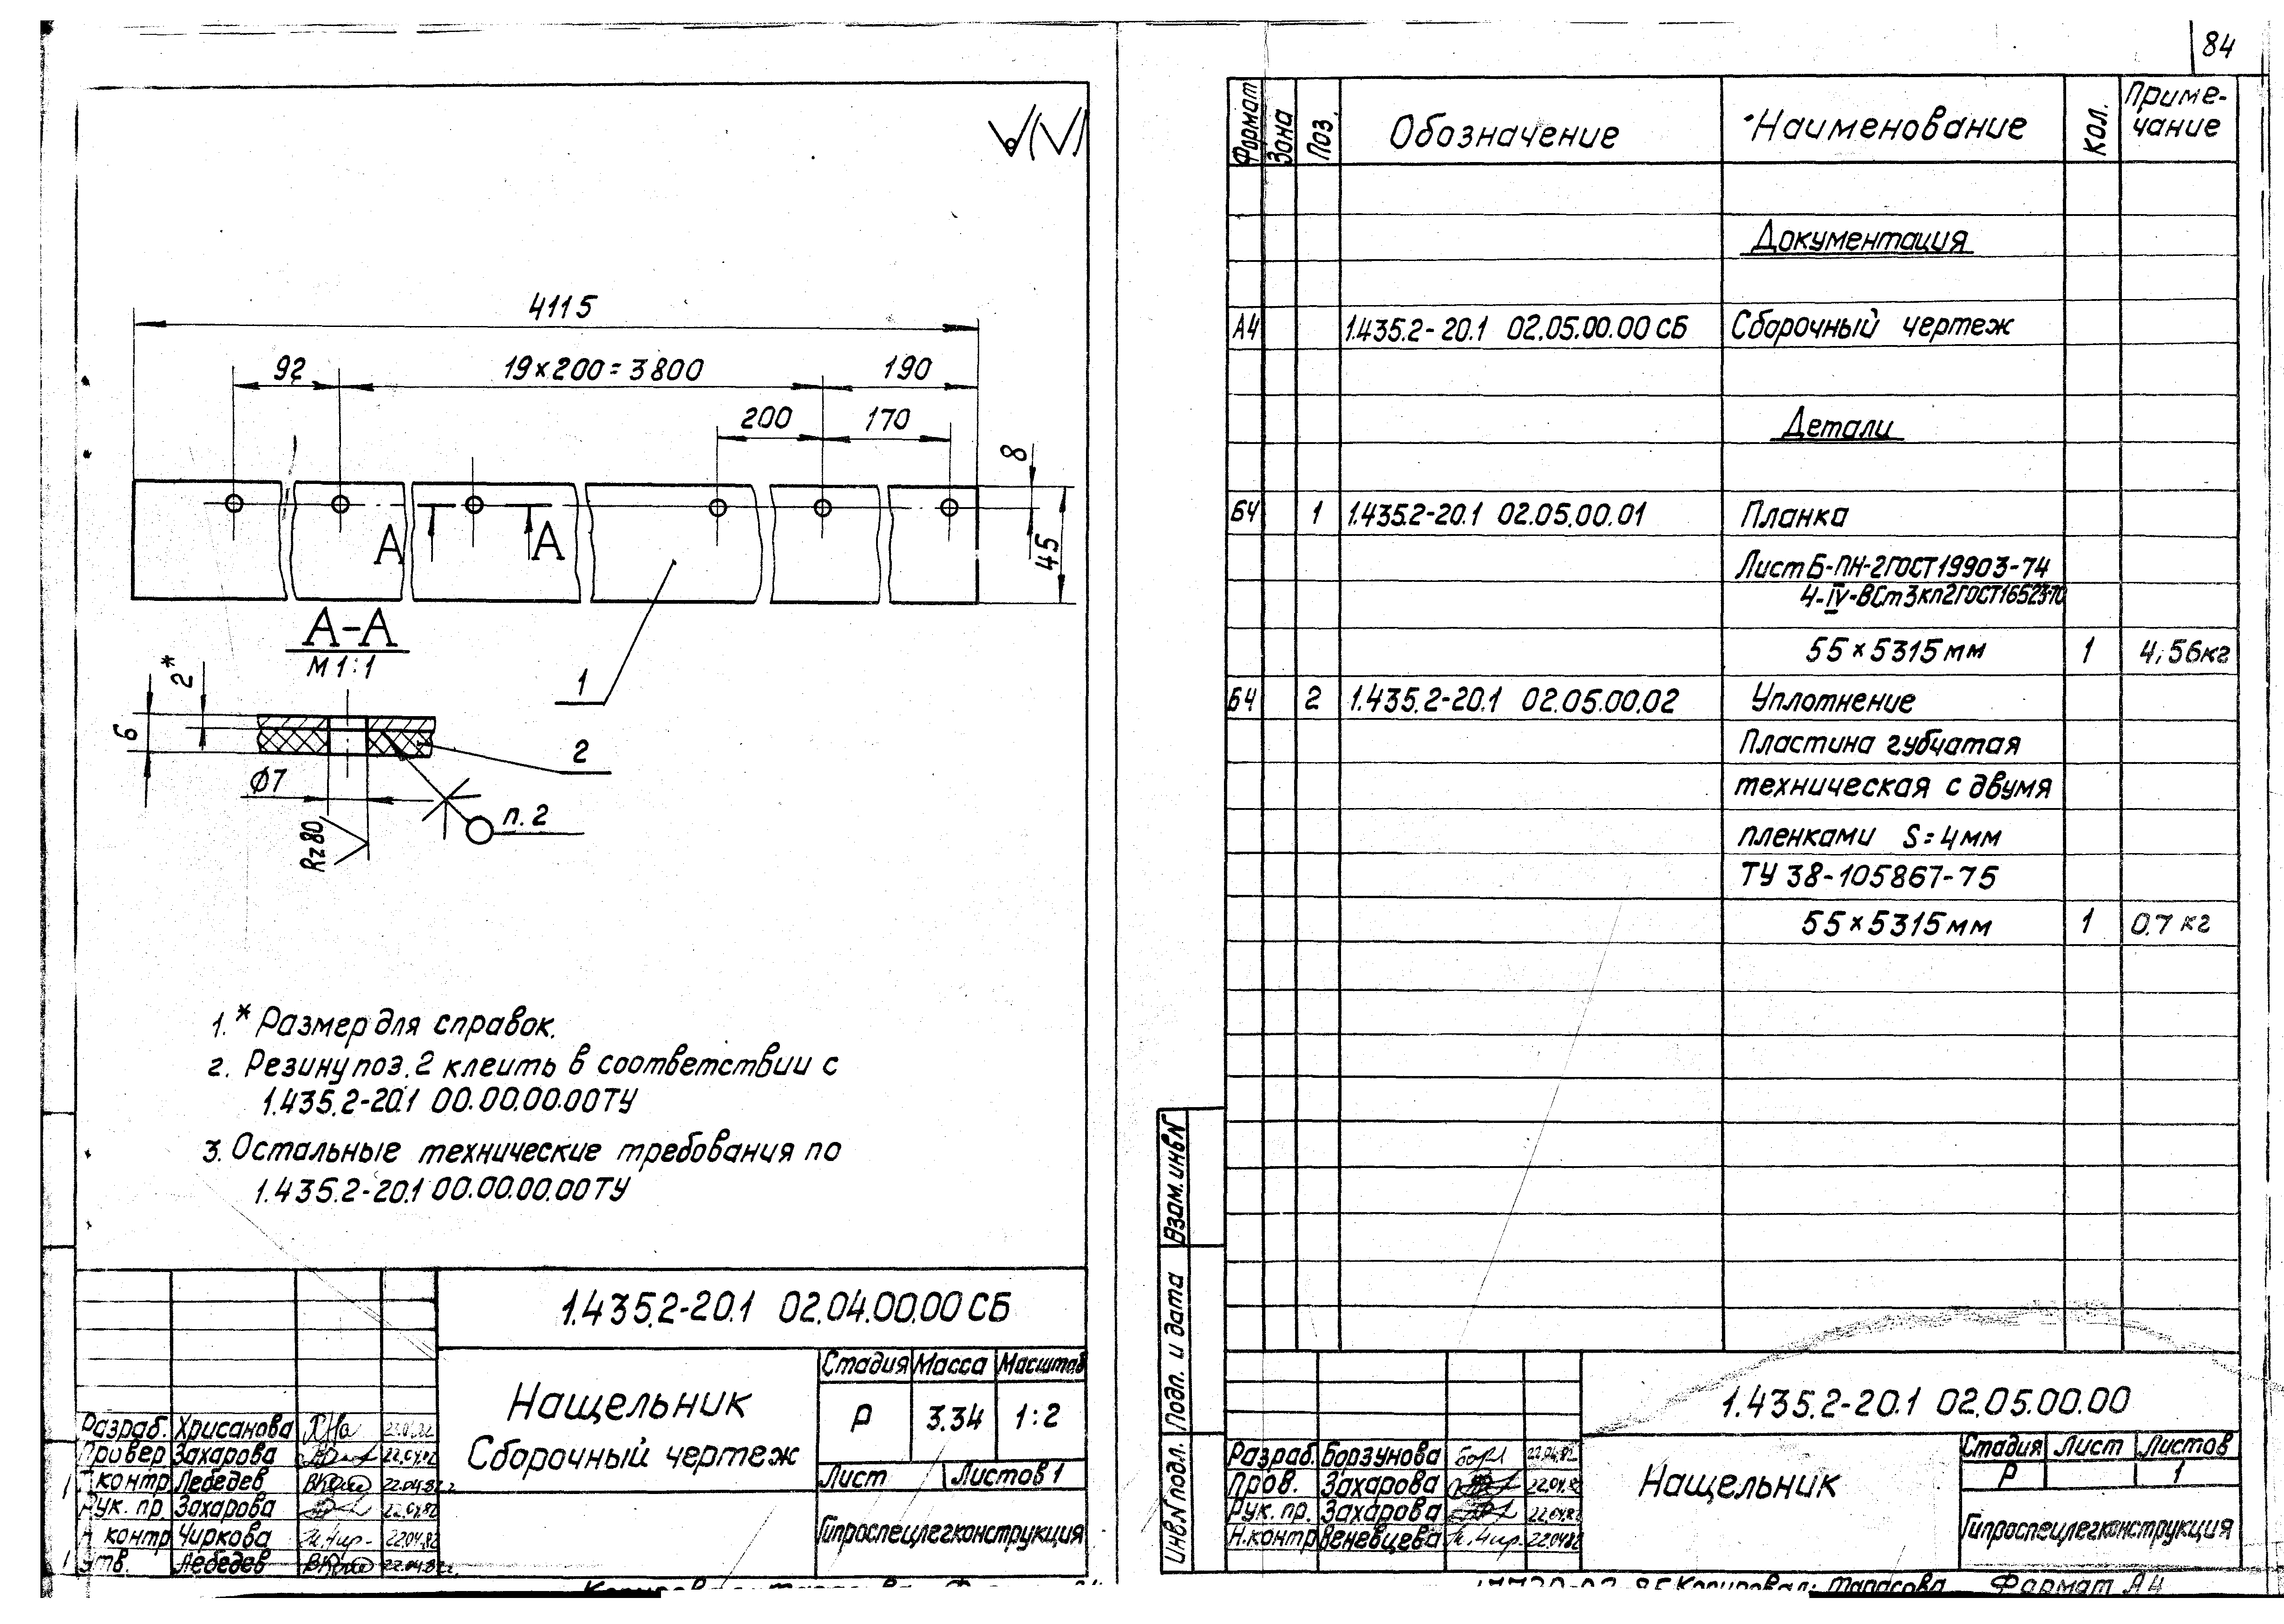 84
4115
92
19×200=3800
190
200
170
8
45
А
А
А-А
М 1:1
1
2*
6
2
Ø7
п. 2
Rz80
1.* Размер для справок.
2. Резину поз. 2 клеить в соответствии с
1.435.2-20.1 00.00.00.00ТУ
3. Остальные технические требования по
1.435.2-20.1 00.00.00.00ТУ
1.435.2-20.1 02.04.00.00 СБ
Нащельник
Сборочный чертеж
Стадия Масса Масштаб
Р 3.34 1:2
Лист Листов 1
Гипроспецлегконструкция
Разраб. Хрисанова
Провер Захарова 22.04.82
Т контр Лебедев 22.04.82г.
Рук. пр. Захарова 22.04.82
Н контр Чиркова 22.04.82
Утв. Лебедев 22.04.82г.
Формат Зона Поз. Обозначение Наименование Кол. Приме-
чание
Документация
А4 1.435.2-20.1 02.05.00.00 СБ Сборочный чертеж
Детали
Б4 1 1.435.2-20.1 02.05.00.01 Планка
Лист Б-ПН-2 ГОСТ 19903-74
4-IV-ВСт3кп2 ГОСТ 16523-70
55×5315 мм 1 4,56кг
Б4 2 1.435.2-20.1 02.05.00.02 Уплотнение
Пластина губчатая
техническая с двумя
пленками S=4мм
ТУ 38-105867-75
55×5315мм 1 0.7 кг
Взам. инв N
Подп. и дата
Инв N подл.
1.435.2-20.1 02.05.00.00
Нащельник
Стадия Лист Листов
Р 1
Гипроспецлегконструкция
Разраб. Борзунова 22.04.82
Пров. Захарова 22.04.82
Рук. пр. Захарова 22.04.82
Н.контр Веневцева 22.04.82
Копировал: Тарасова Формат А4